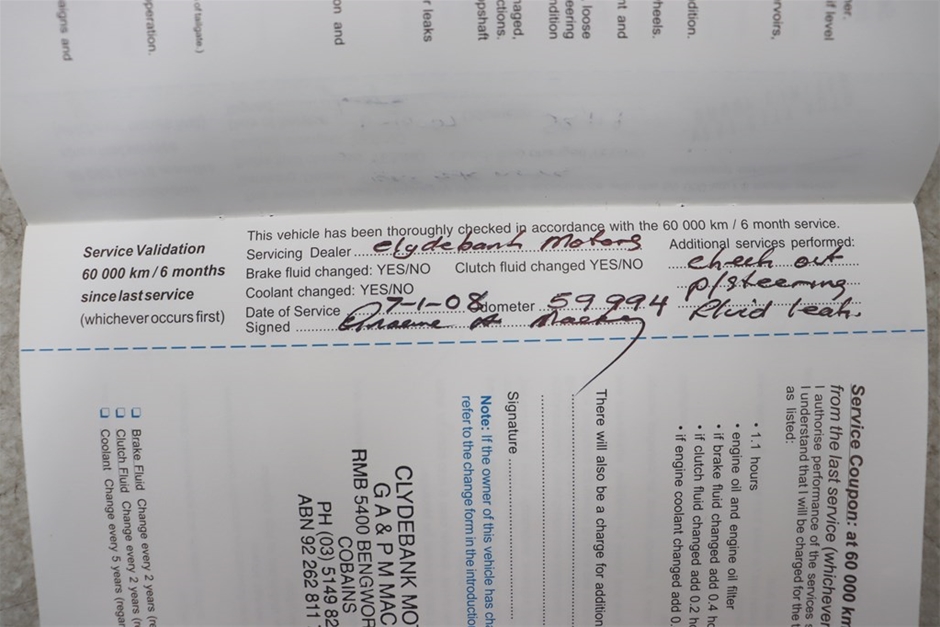 Service Validation
60 000 km / 6 months
since last service
(whichever occurs first)
This vehicle has been thoroughly checked in accordance with the 60 000 km / 6 month service.
Servicing Dealer Clydebank Motors
Brake fluid changed: YES/NO Clutch fluid changed YES/NO
Coolant changed: YES/NO
Date of Service 7-1-08 Odometer 59994
Signed Graeme A Mackay
Additional services performed:
check out
p/steering
fluid leak.
Service Coupon: at 60 000 km
from the last service (whichever
I authorise performance of the services
I understand that I will be charged for the
as listed:
• 1.1 hours
• engine oil and engine oil filter
• if brake fluid changed add 0.4
• if clutch fluid changed add 0.2
• if engine coolant changed add 0.
There will also be a charge for addition
Signature
Note: If the owner of this vehicle has
refer to the change form in the introductio
CLYDEBANK MO
G A & P M MAC
RMB 5400 BENGWOR
COBAINS
PH (03) 5149 82
ABN 92 262 811
Brake Fluid Change every 2 years
Clutch Fluid Change every 2 years
Coolant Change every 5 years (regar
her.
if level
rvoirs,
dition.
heels.
nt and
loose
eering
ndition
maged,
ctions.
opshaft
r leaks
on and
of tailgate.)
operation.
aigns and